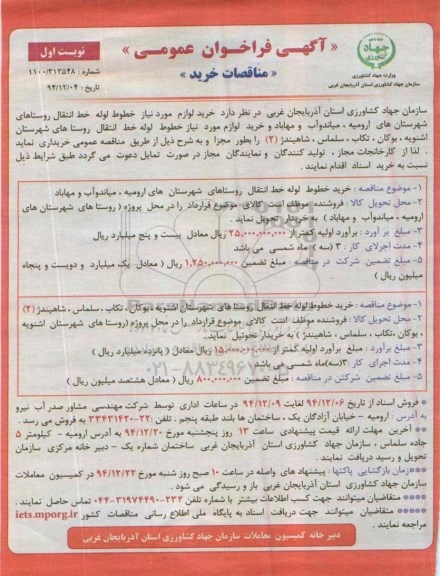 « آگهی فراخوان عمومی »
« مناقصات خرید »
نوبت اول
شماره : ۱۱۰۰/۳۱۳۵۴۸
تاریخ : ۹۴/۱۲/۰۴
جهاد کشاورزی
وزارت جهاد کشاورزی
سازمان جهاد کشاورزی استان آذربایجان غربی
سازمان جهاد کشاورزی استان آذربایجان غربی در نظر دارد خرید لوازم مورد نیاز خطوط لوله خط انتقال روستاهای
شهرستان های ارومیه ، میاندوآب و مهاباد و خرید لوازم مورد نیاز خطوط لوله خط انتقال روستا های شهرستان
اشنویه ، بوکان ، تکاب ، سلماس ، شاهیندژ (۲) را بطور مجزا و به شرح ذیل از طریق مناقصه عمومی خریداری نماید
. لذا از کارخانجات مجاز ، تولید کنندگان و نمایندگان مجاز در صورت تمایل دعوت می گردد طبق شرایط ذیل
نسبت به خرید اسناد اقدام نمایند .
۱- موضوع مناقصه : خرید خطوط لوله خط انتقال روستاهای شهرستان های ارومیه ، میاندوآب و مهاباد
۲- محل تحویل کالا : فروشنده موظف است کالای موضوع قرارداد را در محل پروژه ( روستا های شهرستان های
ارومیه ، میاندوآب و مهاباد ) به خریدار تحویل نماید .
۳- مبلغ بر آورد : برآورد اولیه کمتر از ۲۵,۰۰۰,۰۰۰,۰۰۰ ریال معادل بیست و پنج میلیارد ریال
۴- مدت اجرای کار : ۳ (سه ) ماه شمسی می باشد
۵- مبلغ تضمین شرکت در مناقصه : مبلغ تضمین ۱,۲۵۰,۰۰۰,۰۰۰ ریال ( معادل یک میلیارد و دویست و پنجاه
میلیون ریال )
۱- موضوع مناقصه : خرید خطوط لوله خط انتقال روستا های شهرستان اشنویه ، بوکان ، تکاب ، سلماس ، شاهیندژ (۲)
۲- محل تحویل کالا : فروشنده موظف است کالای موضوع قرارداد را در محل پروژه (روستا های شهرستان اشنویه
، بوکان ،تکاب ، سلماس ، شاهیندژ ) به خریدار تحویل نماید.
۳- مبلغ برآورد : مبلغ برآورد اولیه کمتر از ۱۵,۰۰۰,۰۰۰,۰۰۰ ریال معادل ( پانزده میلیارد ریال )
۴- مدت اجرای کار :۳(سه)ماه شمسی می باشد
۵- مبلغ تضمین شرکتن در مناقصه : مبلغ تضمین ۸۰۰,۰۰۰,۰۰۰ ریال ( معادل هشتصد میلیون ریال )
* فروش اسناد از تاریخ ۹۴/۱۲/۰۶ لغایت ۹۴/۱۲/۰۹ در ساعات اداری توسط شرکت مهندسی مشاور صدر آب نیرو
به آدرس : ارومیه – خیابان آزادگان یک ، ساختمان ها بلند طبقه پنجم . تلفن :۲۲-۳۳۴۳۱۴۲۰ به فروش می رسد .
** آخرین مهلت ارائه قیمت پیشنهادی ساعت ۱۳ روز پنجشنبه مورخ ۹۴/۱۲/۲۰ به آدرس ارومیه - کیلومتر ۵
جاده سلماس ، سازمان جهاد کشاورزی استان آذربایجان غربی ساختمان شماره یک – دبیر خانه مرکزی سازمان
تحویل و رسید دریافت نمایند .
***زمان بازگشایی پاکتها : پیشنهاد های واصله در ساعت ۱۰ صبح روز شنبه مورخ ۹۴/۱۲/۲۲ در کمیسیون معاملات
سازمان جهاد کشاورزی استان آذربایجان غربی باز و رسیدگی می شود .
**** متقاضیان میتوانند جهت کسب اطلاعات بیشتر با شماره تلفن ۲۳۲-۳۱۹۷۴۴۹۰-۰۴۴ تماس حاصل نمایند .
***** متقاضیان میتوانند جهت دریافت اسناد به پایگاه ملی اطلاع رسانی مناقصات کشور iets.mporg.ir
مراجعه نمایند .
دبیر خانه کمیسیون معاملات سازمان جهاد کشاورزی استان آذربایجان غربی